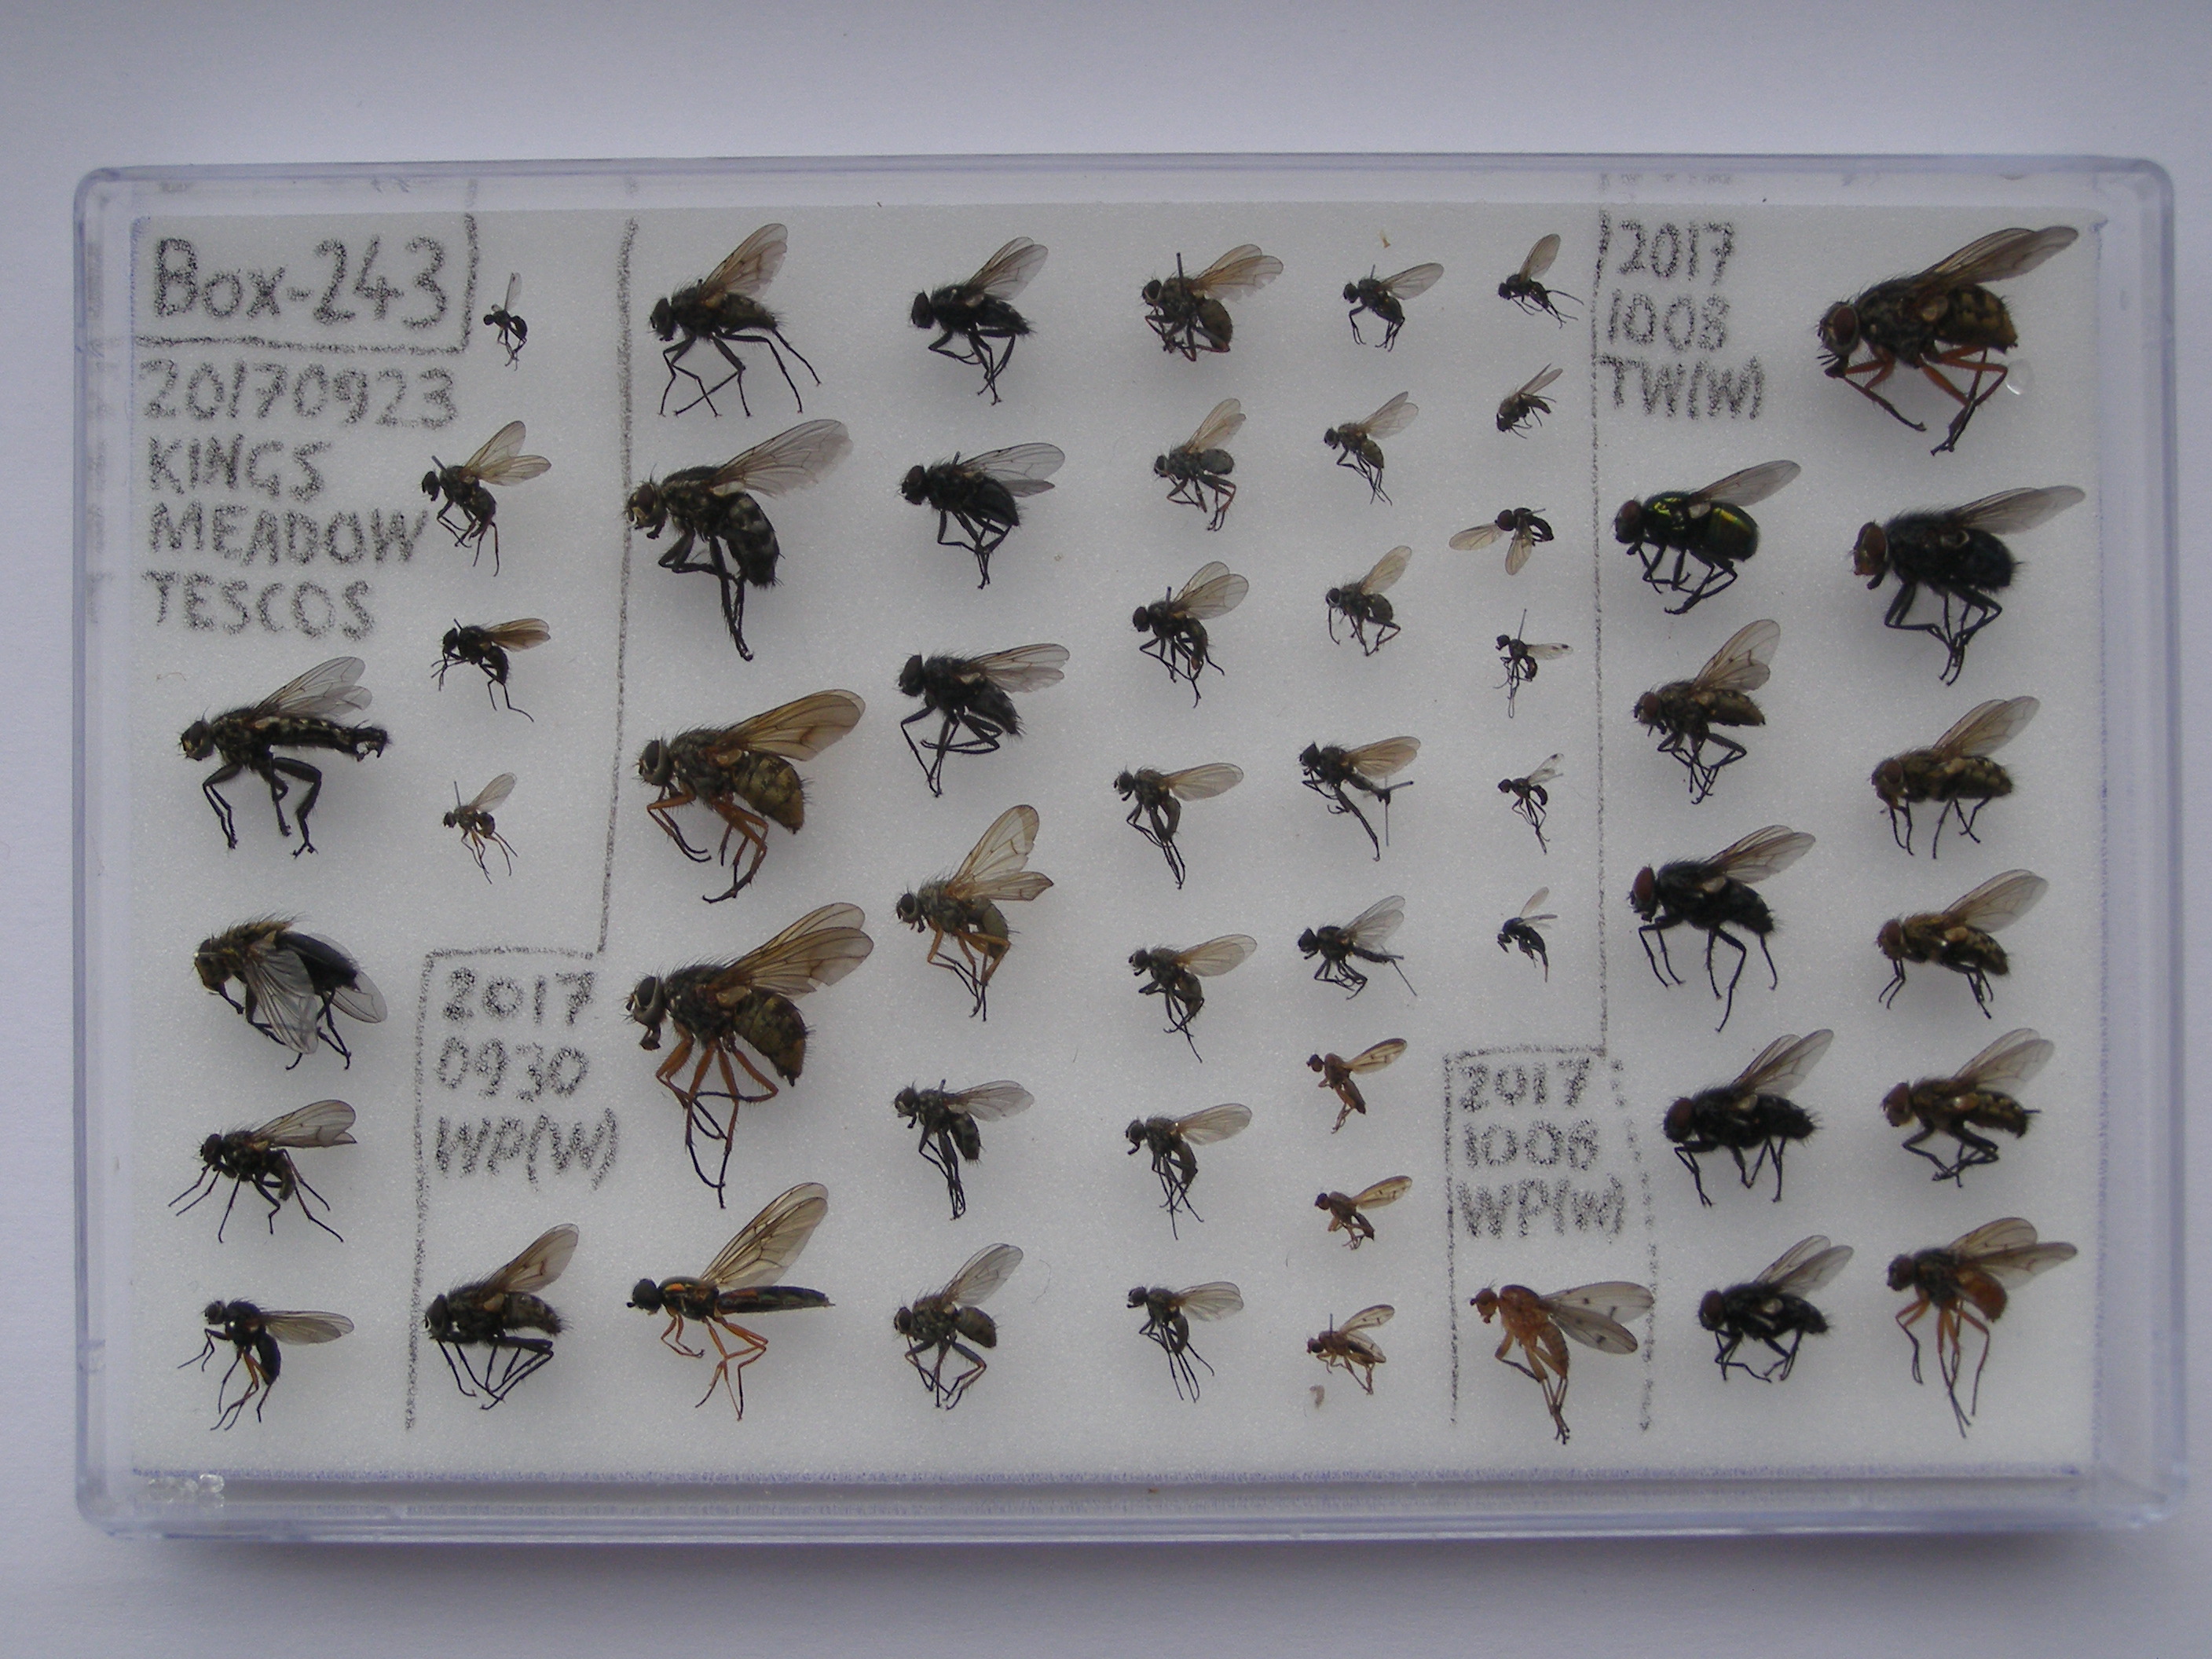 Box-243
20170923
KINGS
MEADOW
TESCOS
2017
0930
WP(W)
2017
1006
WP(W)
2017
1008
TW(W)